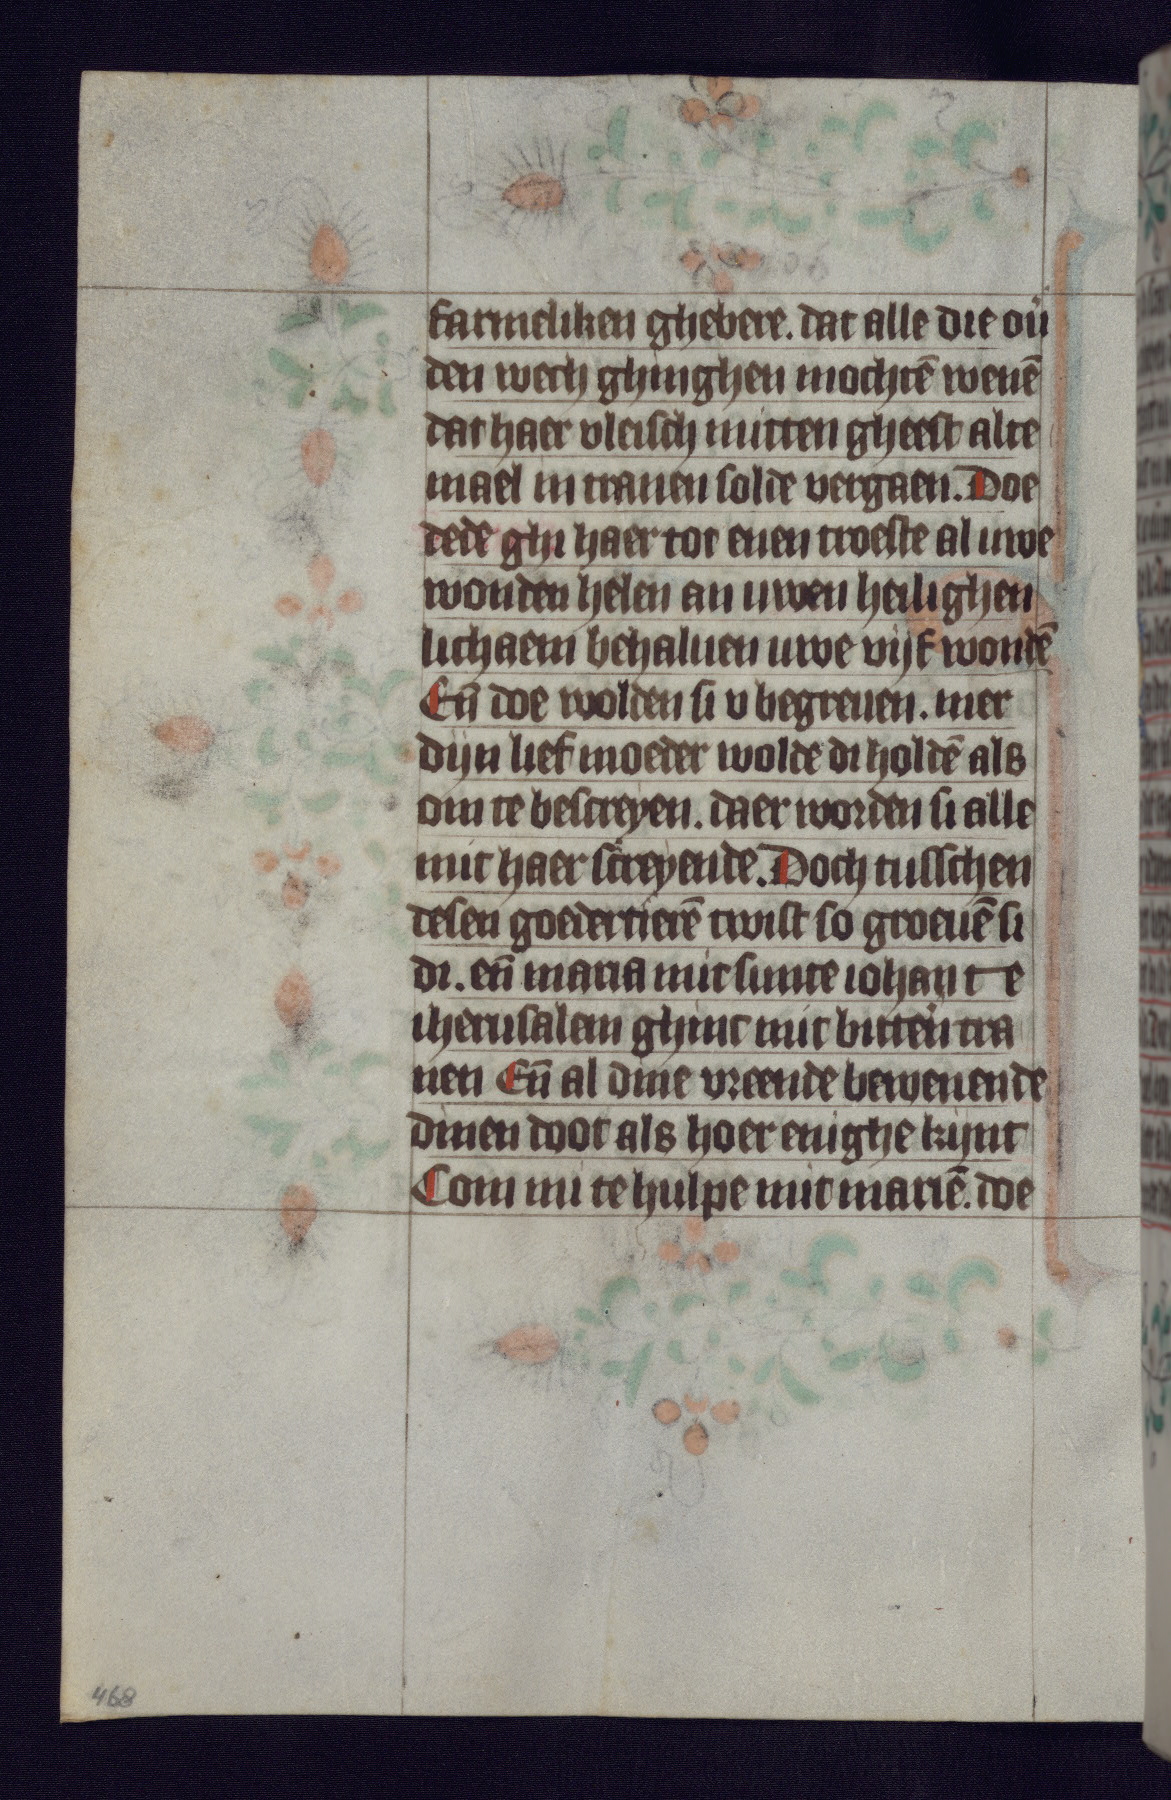 farmeliken ghebere. dat alle die ou᷑
den wech ghinghen mochtē wenē
dat haer vleisch mitten gheest alte
mael in tranen solde vergaen. Doe
dede ghi haer tot enen troeste al uwe
wonden helen an uwen heilighen
lichaem behaluen uwe vijf wondē
Eñ doe wolden si v begreuen. mer
dijn lief moeder wolde di holdē als
om te bescreyen. daer worden si alle
mit haer screyende. Doch tusschen
desen goedertierē twist so groeuē si
di. eñ maria mit sunte iohan te
iherusalem ghinc mit bittēn tra
nen Eñ al dine vreende bewenende
dinen doot als hoer enighe kijnt
Com mi te hulpe mit mariē. doe
468